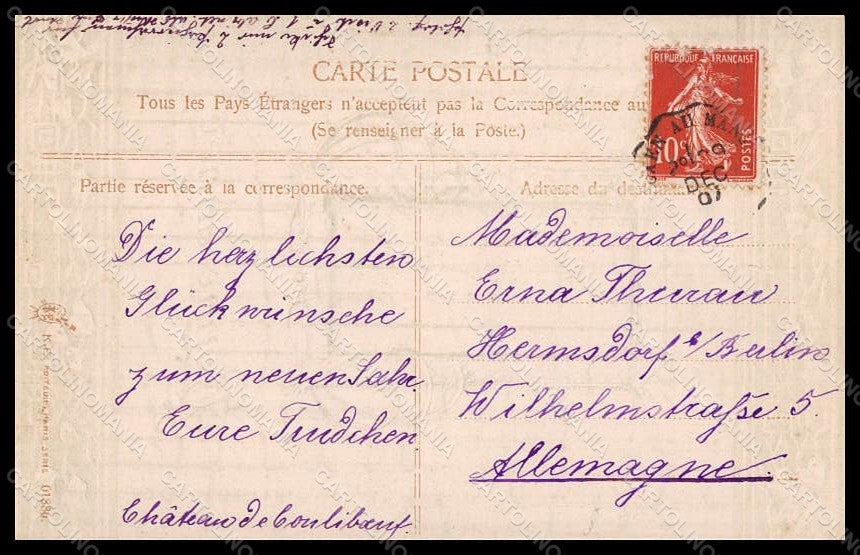 CARTE POSTALE
Tous les Pays Étrangers n'acceptent pas la Correspondance au
(Se renseigner à la Poste.)
REPUBLIQUE FRANÇAISE
10c POSTES
AU MANS
DEC
Partie réservée à la correspondance.
Die herzlichsten
Glückwünsche
zum neuen Jahr
Eure Trudchen
Château de Coulibœuf
Adresse du destinataire
Mademoiselle
Erna Thurau
Hermsdorf b/Berlin
Wilhelmstraße 5.
Allemagne.
01880
CARTOLINOMANIA